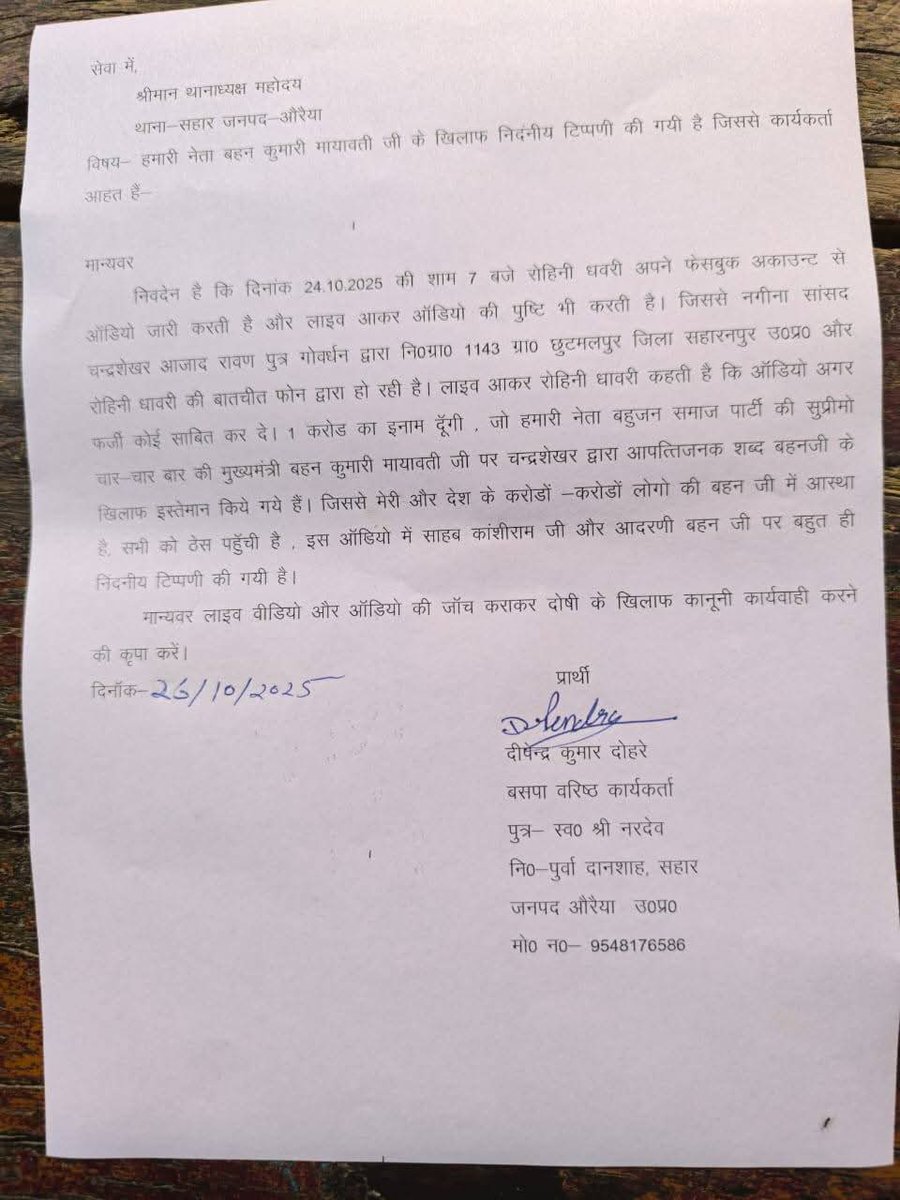 सेवा में,
श्रीमान थानाध्यक्ष महोदय
थाना–सहार जनपद–औरैया
विषय– हमारी नेता बहन कुमारी मायावती जी के खिलाफ निदंनीय टिप्पणी की गयी है जिससे कार्यकर्ता
आहत हैं–
मान्यवर
निवदेन है कि दिनांक 24.10.2025 की शाम 7 बजे रोहिनी धवरी अपने फेसबुक अकाउन्ट से
ऑडियो जारी करती है और लाइव आकर ऑडियो की पुष्टि भी करती है। जिससे नगीना सांसद
चन्द्रशेखर आजाद रावण पुत्र गोवर्धन द्वारा नि0ग्रा0 1143 ग्रा0 छुटमलपुर जिला सहारनपुर उ0प्र0 और
रोहिनी धावरी की बातचीत फोन द्वारा हो रही है। लाइव आकर रोहिनी धावरी कहती है कि ऑडियो अगर
फर्जी कोई साबित कर दे। 1 करोड का इनाम दूँगी , जो हमारी नेता बहुजन समाज पार्टी की सुप्रीमो
चार–चार बार की मुख्यमंत्री बहन कुमारी मायावती जी पर चन्द्रशेखर द्वारा आपत्तिजनक शब्द बहनजी के
खिलाफ इस्तेमान किये गये हैं। जिससे मेरी और देश के करोडों –करोडों लोगो की बहन जी में आस्था
है, सभी को ठेस पहुँची है , इस ऑडियो में साहब कांशीराम जी और आदरणी बहन जी पर बहुत ही
निदनीय टिप्पणी की गयी है।
मान्यवर लाइव वीडियो और ऑडियो की जॉच कराकर दोषी के खिलाफ कानूनी कार्यवाही करने
की कृपा करें।
दिनॉक– 26/10/2025
प्रार्थी
दीषेन्द्र कुमार दोहरे
बसपा वरिष्ठ कार्यकर्ता
पुत्र– स्व0 श्री नरदेव
नि0–पुर्वा दानशाह, सहार
जनपद औरैया उ0प्र0
मो0 न0– 9548176586